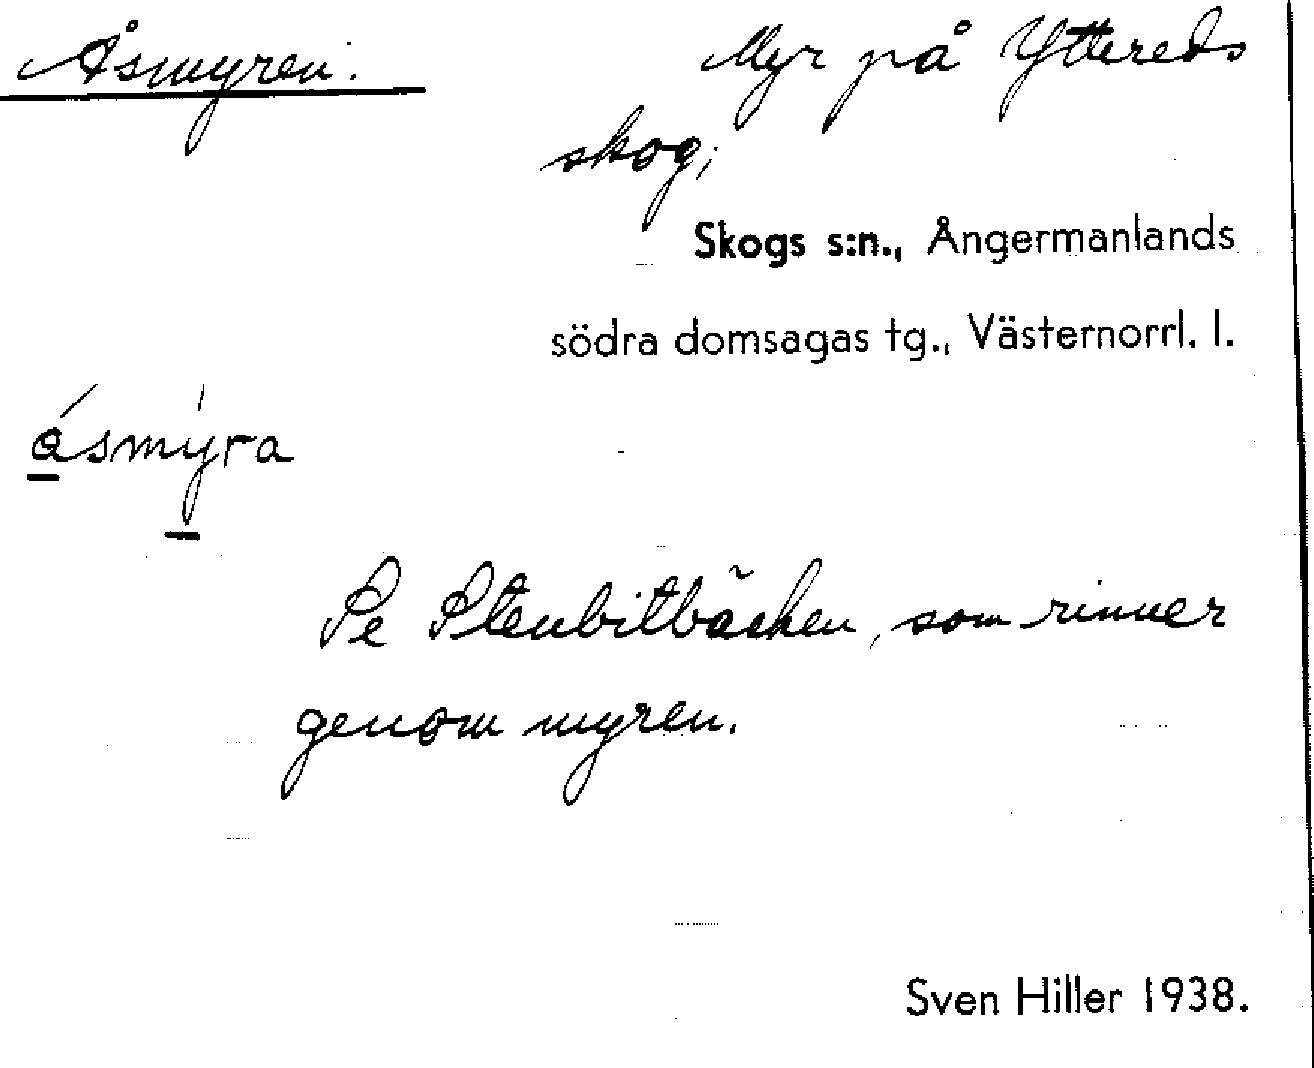 Åsmyren.
Myr på Yttereds
skog;
Skogs s:n., Ångermanlands
södra domsagas tg., Västernorrl. l.
åsmy̍ra
Se Stenbitbäcken, som rinner
genom myren.
Sven Hiller 1938.